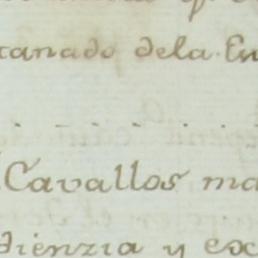 tanado dela En
Cavallos ma
dienzia y ex